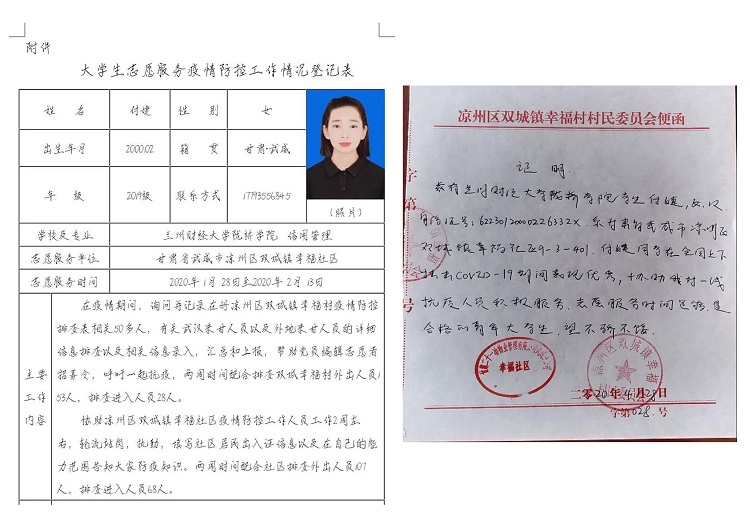 附件
大学生志愿服务疫情防控工作情况登记表
姓 名 付婕 性 别 女
出生年月 2000.02 籍 贯 甘肃·武威
年 级 2019级 联系方式 17793556845
(照片)
学校及专业 兰州财经大学陇桥学院 信用管理
志愿服务单位 甘肃省武威市凉州区双城镇幸福社区
志愿服务时间 2020年1月28日至2020年2月13日
主要工作内容
在疫情期间,询问并记录在册凉州区双城镇幸福村疫情防控
排查表相关50多人,有关武汉来甘人员以及外地来甘人员的详细
信息排查以及相关信息录入,汇总和上报,帮财党员编辑志愿者
招募令,呼吁一起抗疫,两周时间配合排查双城幸福村外出人员1
53人,排查进入人员28人。
协助凉州区双城镇幸福社区疫情防控工作人员工作2周左
右,轮流站岗,执勤,填写社区居民出入证信息以及在自己的能
力范围告知大家防疫知识。两周时间配合社区排查外出人员107
人,排查进入人员68人。
凉州区双城镇幸福村村民委员会便函
证 明
兹有兰州财经大学陇桥学院学生付婕,女,汉
身份证号:62230120000226332X.系甘肃省武威市凉州区
双城镇幸福社区9-3-401.付婕同学在全国上下
抗击COVID-19期间表现优秀,协助我村一线
抗疫人员积极服务,志愿服务时间足够,是
合格的青年大学生,望不骄不馁.
幸福社区
凉州区双城镇幸福
二〇20年4月28日
字第028.号
字第
号